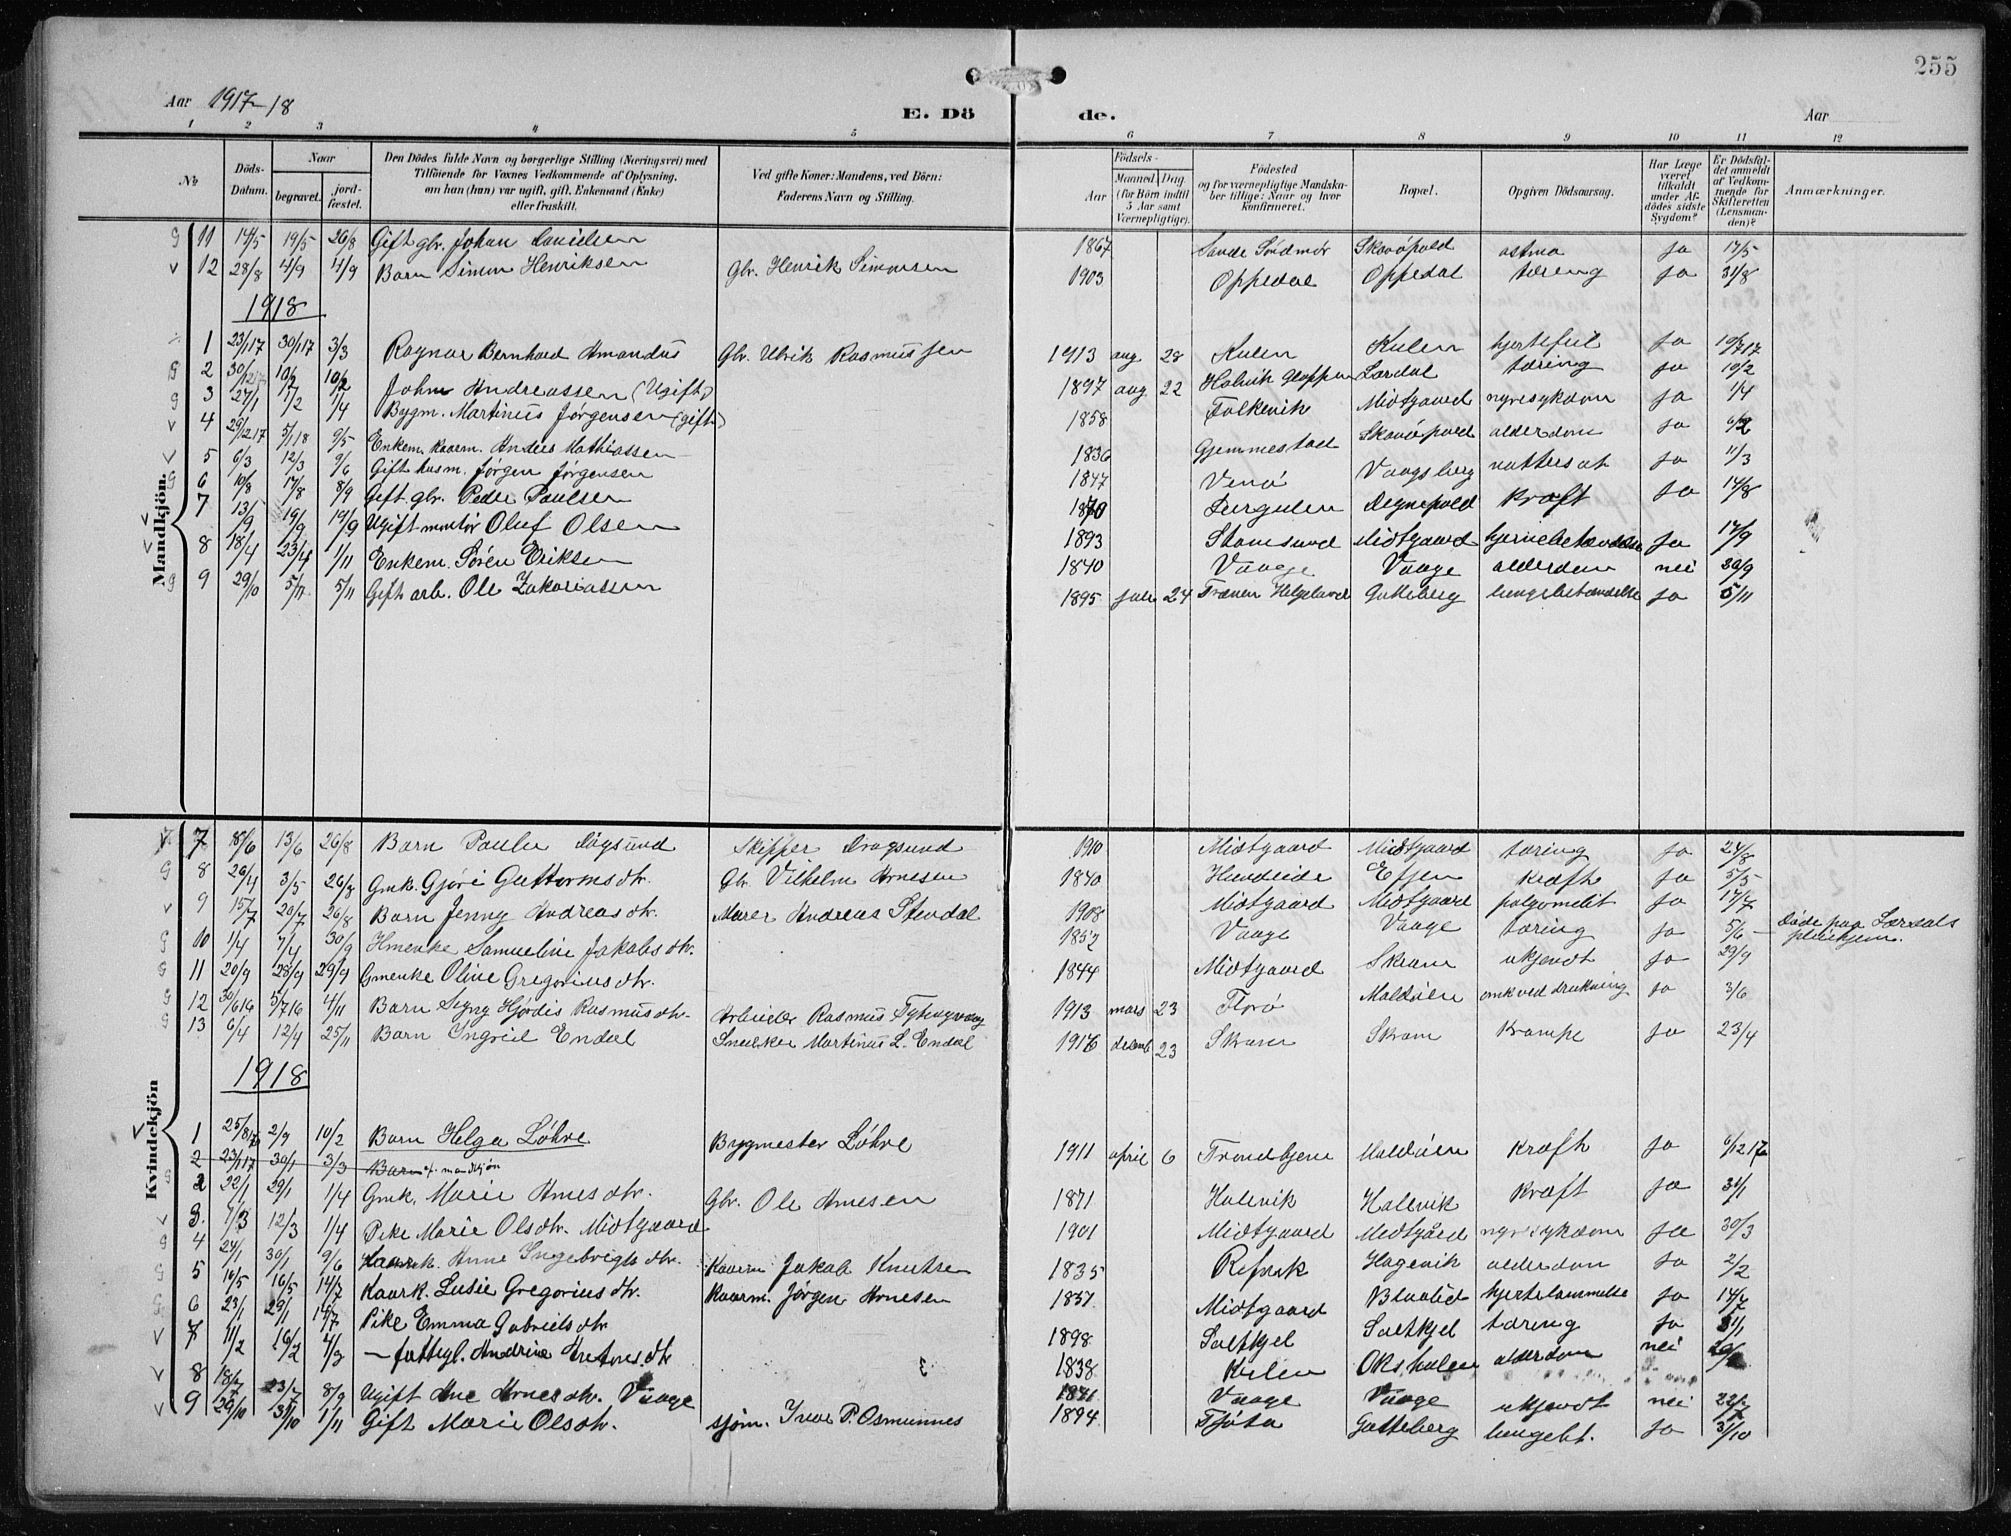 255
Aar 1917-18
E. Dö de.
Aar
1 2 3 4 5 6 7 8 9 10 11 12
No
Döds-Datum.
Naar
begravet.
jord-fæstet.
Den Dödes fulde Navn og borgerlige Stilling (Næringsvei) med Tilföiende for Voxnes Vedkommende af Oplysning, om han (hun) var ugift, gift, Enkemand (Enke) eller fraskilt.
Ved gifte Koner: Mandens, ved Börn: Faderens Navn og Stilling.
Födsels-
Aar
Maaned. Dag.
(for Börn indtil 5 Aar samt Værnepligtige).
Födested og for værnepligtige Mandskaber tillige: Naar og hvor konfirmeret.
Bopæl.
Opgiven Dödsaarsag.
Har Læge været tilkaldt under Afdödes sidste Sygdom?
Er Dödsfaldet anmeldt af Vedkommende for Skifteretten (Lensmanden)?
Anmærkninger.
Mandkjön.
11 14/5 19/5 26/8 Gift gbr. Johan Danielsen 1867 Sande Söndmör Skavöpold astma ja 17/5
12 28/8 4/9 4/9 Barn Simon Henriksen Gbr. Henrik Simonsen 1903 Oppedal Oppedal tæring ja 31/8
1918
1 23/1 17 30/1 17 3/3 Ragnar Bernhard Amandus Gbr. Ulrik Rasmussen 1913 aug 28 Kulen Kulen hjertefeil ja
2 30/12 10/2 10/2 Johan Andreassen (Ugift) 1897 aug 22 Halvik Gloppen Lærdal tæring ja 10/2
3 27/1 1/2 1/4 Bygm. Martinus Jørgensen (gift) 1858 Falkevik Midtgaard nyresykdom ja 1/4
4 29/12 17 5/1 18 9/5 Enkem. kaarm. Anders Mathiassen 1836 Gjemmestad Skavöpold alderdom ja 6/2
5 6/3 12/3 9/6 Gift husm. Jørgen Jørgensen 1847 Venö Vaagsberg ja 11/3
6 10/8 17/8 8/9 Gift gbr. Peder Paulsen 1870 Degnepold kræft ja 14/8
7 13/9 19/9 19/9 Ugift montör Oluf Olsen 1893 Stamsund Midtgaard hjernebetændelse ja 17/9
8 18/4 23/4 1/11 Enkem. Sören Eriksen 1840 Vaage Vaage alderdom nei 20/9
9 29/10 5/11 5/11 Gift arb. Ole Zakariassen 1895 juli 24 Trænen Helgeland Gatteberg lungebetændelse ja 5/11
Kvindekjön
7 8/6 13/6 26/8 Barn Paula Dagsund Skipper Dragsund 1910 Midtgaard Midtgaard tæring ja 24/8
8 26/4 3/5 26/8 Gmk. Gjöri Guttormsdtr. Gbr. Vilhelm Arnesen 1840 Hundeide Eltjen kræft ja 5/5
9 15/7 20/7 26/8 Barn Jenny Andreasdtr. Murer Andreas Stendal 1908 Midtgaard Midtgaard polyomelit ja 17/7
10 1/4 7/4 30/9 Hmenke Samueline Jakobsdtr. 1852 Vaage Vaage tæring ja 5/6 Döde paa Lærdals pleiehjem.
11 20/9 28/9 29/9 Gmenke Oline Gregoriusdtr. 1844 Midtgaard Skram ukjendt ja 29/9
12 30/6 16 5/7 16 4/11 Barn Signy Hjördis Rasmusdtr. Arbeider Rasmus 1913 mars 23 Florö Maldöen omk ved drukning ja 3/6
13 6/4 12/4 25/11 Barn Ingrid Endal Snedker Martinus L. Endal 1916 decemb 23 Skram Skram krampe ja 23/4
1918
1 25/8 17 2/9 10/2 Barn Helga Löhre Bygmester Löhre 1911 april 6 Trondhjem Maldöen kræft ja 6/12 17
2 23/1 17 30/1 3/3 Barn mandkjön
2 22/1 29/1 1/4 Gmk. Marie Arnesdtr. Gbr. Ole Arnesen 1871 Halevik Halevik kræft ja 31/1
3. 1/3 12/3 1/4 Pike Marie Olsdtr. Midtgaard 1901 Midtgaard Midtgård nyresykdom ja 30/3
4 24/1 30/1 9/6 Kaark. Anne Ingebrigtsdtr. Kaarm Jakob Knutsen 1835 Refvik Hagevik alderdom ja 2/2
5 10/5 16/5 14/7 Kaark. Lusie Gregoriusdtr. Kaarm. Jørgen Arnesen 1837. Midtgaard Blaalid hjertelammelse ja
6 23/1 29/1 14/7 Pike Emma Gabrielsdtr. 1898 Saltkjel Saltkjel tæring ja 31/1
7 11/2 16/2 4/3 — fattigl. Andrine 1838 Kulen Okshalen alderdom nei
8 18/7 23/7 8/9 Ugift Ane Arnesdtr. Vaage Vaage Vaage ukjendt nei 22/7
9 26/10 31/10 1/11 Gift Marie Olsdtr. sjöm. Ivar P. Osmunnes 1894 Tjøta Gatteberg lungebt. ja 31/10